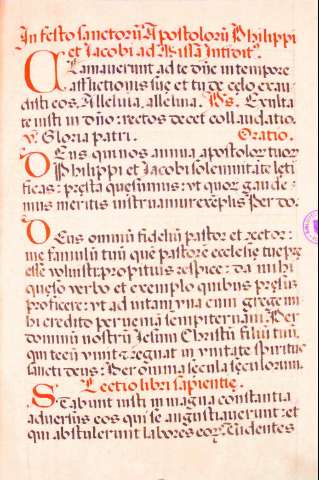 In festo sanctorū Apostolorū Philippi
et Iacobi ad Missā Introit⁹.
Clamaverunt ad te dn̄e in tempore
afflictionis sue et tu de celo exau-
disti eos, Alleluia, alleluia. Ps. Exulta
te iusti in dn̄o: rectos decet collaudatio.
v. Gloria patri. Oratio.
Deus qui nos annua apostolor tuor
Philippi et Iacobi solemnitate leti
ficas: pręsta quesumus: vt quor gaude-
mus meritis instruamur exēplis Per do.
Deus omniū fideliū pastor et rector:
me famulū tuū quē pastorē ecclesię tuę pre
esse voluisti: propitius respice: da mihi
quęso verbo et exemplo quibus pręsum
proficere: vt ad vitam vna cum grege mi
hi credito perveniā sempiternam. Per
dominū nostrū Iesum Christū filiū tuū,
qui tecū vivit & regnat in vnitate spiritus
sancti deus: Per omnia secula seculorum.
Lectio libri sapientię.
Stabunt iusti in magna constantia
adversus eos qui se angustiaverunt: et
qui abstulerunt labores eor. Videntes